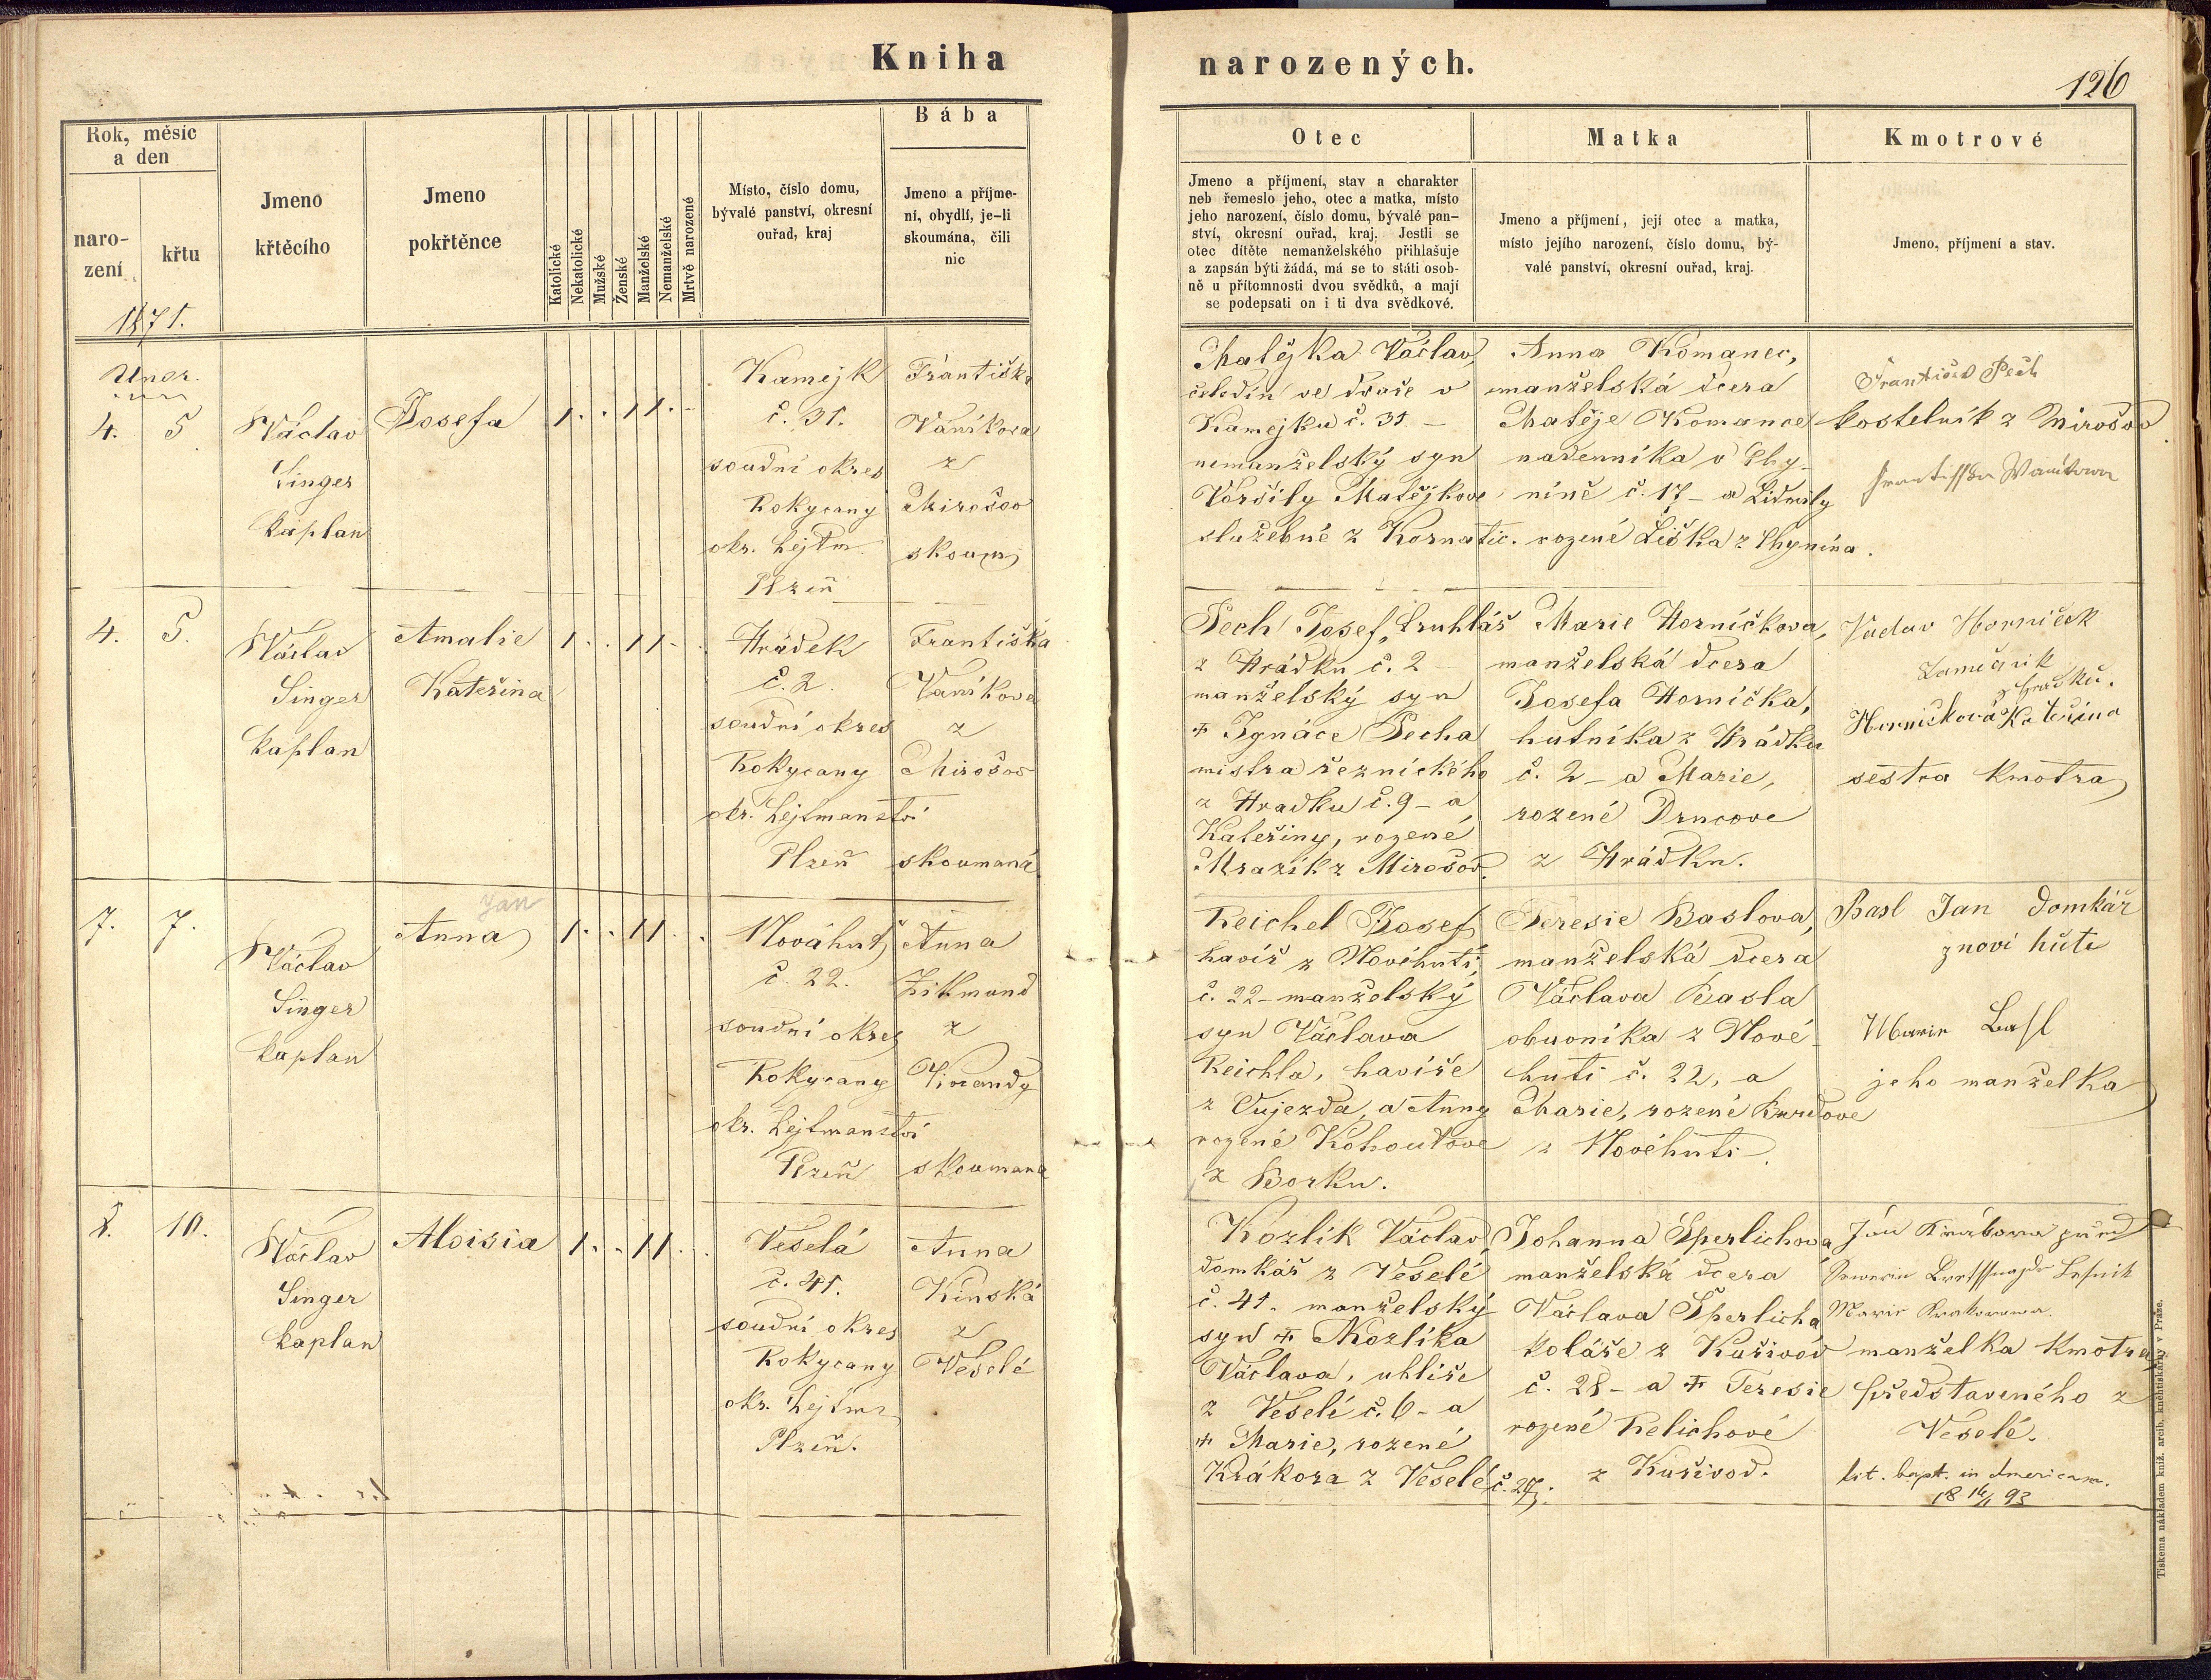 Kniha
narozených.
126
Rok, měsíc
a den
naro-
zení
křtu
1871.
Jmeno
křtěcího
Jmeno
pokřtěnce
Katolické
Nekatolické
Mužské
Ženské
Manželské
Nemanželské
Mrtvě narozené
Místo, číslo domu,
bývalé panství, okresní
ouřad, kraj
Bába
Jmeno a příjme-
ní, obydlí, je-li
skoumána, čili
nic
Otec
Jmeno a příjmení, stav a charakter
neb řemeslo jeho, otec a matka, místo
jeho narození, číslo domu, bývalé pan-
ství, okresní ouřad, kraj. Jestli se
otec dítěte nemanželského přihlašuje
a zapsán býti žádá, má se to státi osob-
ně u přítomnosti dvou svědků, a mají
se podepsati on i ti dva svědkové.
Matka
Jmeno a příjmení, její otec a matka,
místo jejího narození, číslo domu, bý-
valé panství, okresní ouřad, kraj.
Kmotrové
Jmeno, příjmení a stav.
Unor.
4. 5
Václav
Singer
kaplan
Josefa
1 . . 1 1 . -
Kamejk
č. 31.
soudní okres
Rokycany
okr. hejtm.
Plzeň
Františka
Vaníkova
z
Mirošov
skoum
Matějka Václav,
čeledín ve dvoře v
Kamejku č. 31 -
nemanželský syn
Voršily Matějkove
služebné z Kornatic.
Anna Komanec,
manželská dcera
Matěje Komance
nadenníka v Chy-
níně č. 17 - a Lidmily
rozené Liška z Chynína.
František Pech
kostelník z Mirošov
Frantisska Wanikowa
4. 5.
Václav
Singer
kaplan
Amalie
Kateřina
1 . . 1 1 - .
Hrádek
č. 2.
soudní okres
Rokycany
okr. hejtmanství
Plzeň
Františka
Vaníkova
z
Mirošov
skoumaná
Pech Josef, truhlář
z Hrádku č. 2 -
manželský syn
+ Ignáce Pecha
mistra řeznického
z Hradku č. 9 - a
Kateřiny, rozené
Mrazík z Mirošov.
Marie Horníčkova,
manželská dcera
Josefa Horníčka,
hutníka z Hrádku
č. 2 - a Marie,
rozené Drncove
z Hrádku.
Václav Horniček
Zamečnik
z hradku.
Horničková Kateřina
sestra kmotra
7. 7.
Václav
Singer
kaplan
Jan
Anna
1 . . 1 1 . .
Nováhuť
č. 22.
soudní okres
Rokycany
okr. hejtmanství
Plzeň
Anna
Zikmund
z
Mirandy
skoumana
Reichel Josef
havíř z Novéhuti,
č. 22 - manželský
syn Václava
Reichla, havíře
z Oujezda, a Anny
rozené Kohoutove
z Borku.
Teresie Baslova,
manželská dcera
Václava Basla
obuvníka z Nové-
huti č. 22, a
Marie, rozené Burdove
z Novéhuti.
Basl Jan Domkář
z noví hutě
Marie Basl
jeho manželka
8. 10.
Václav
Singer
kaplan
Aloisia
1 . . 1 1 . .
Veselá
č. 41.
soudní okres
Rokycany
okr. hejtm
Plzeň.
Anna
Kinská
z
Veselé
Kozlík Václav,
domkář z Veselé
č. 41. manželský
syn + Kozlíka
Václava, uhlíře
z Veselé č. 6 - a
+ Marie, rozené
Krákora z Veselé č. 27.
Johanna Šperlichová
manželská dcera
Václava Šperlicha
koláře z Kařivod
č. 28 - a + Teresie
rozené Relichové
z Kařivod.
Jan Krakora
Marie Krakorowa
manželka kmotra,
představeného z
Veselé.
lit. bapt. in Americam.
18 16/1 93
Tiskema nákladem kníž. arcib. knihtiskárny v Praze.